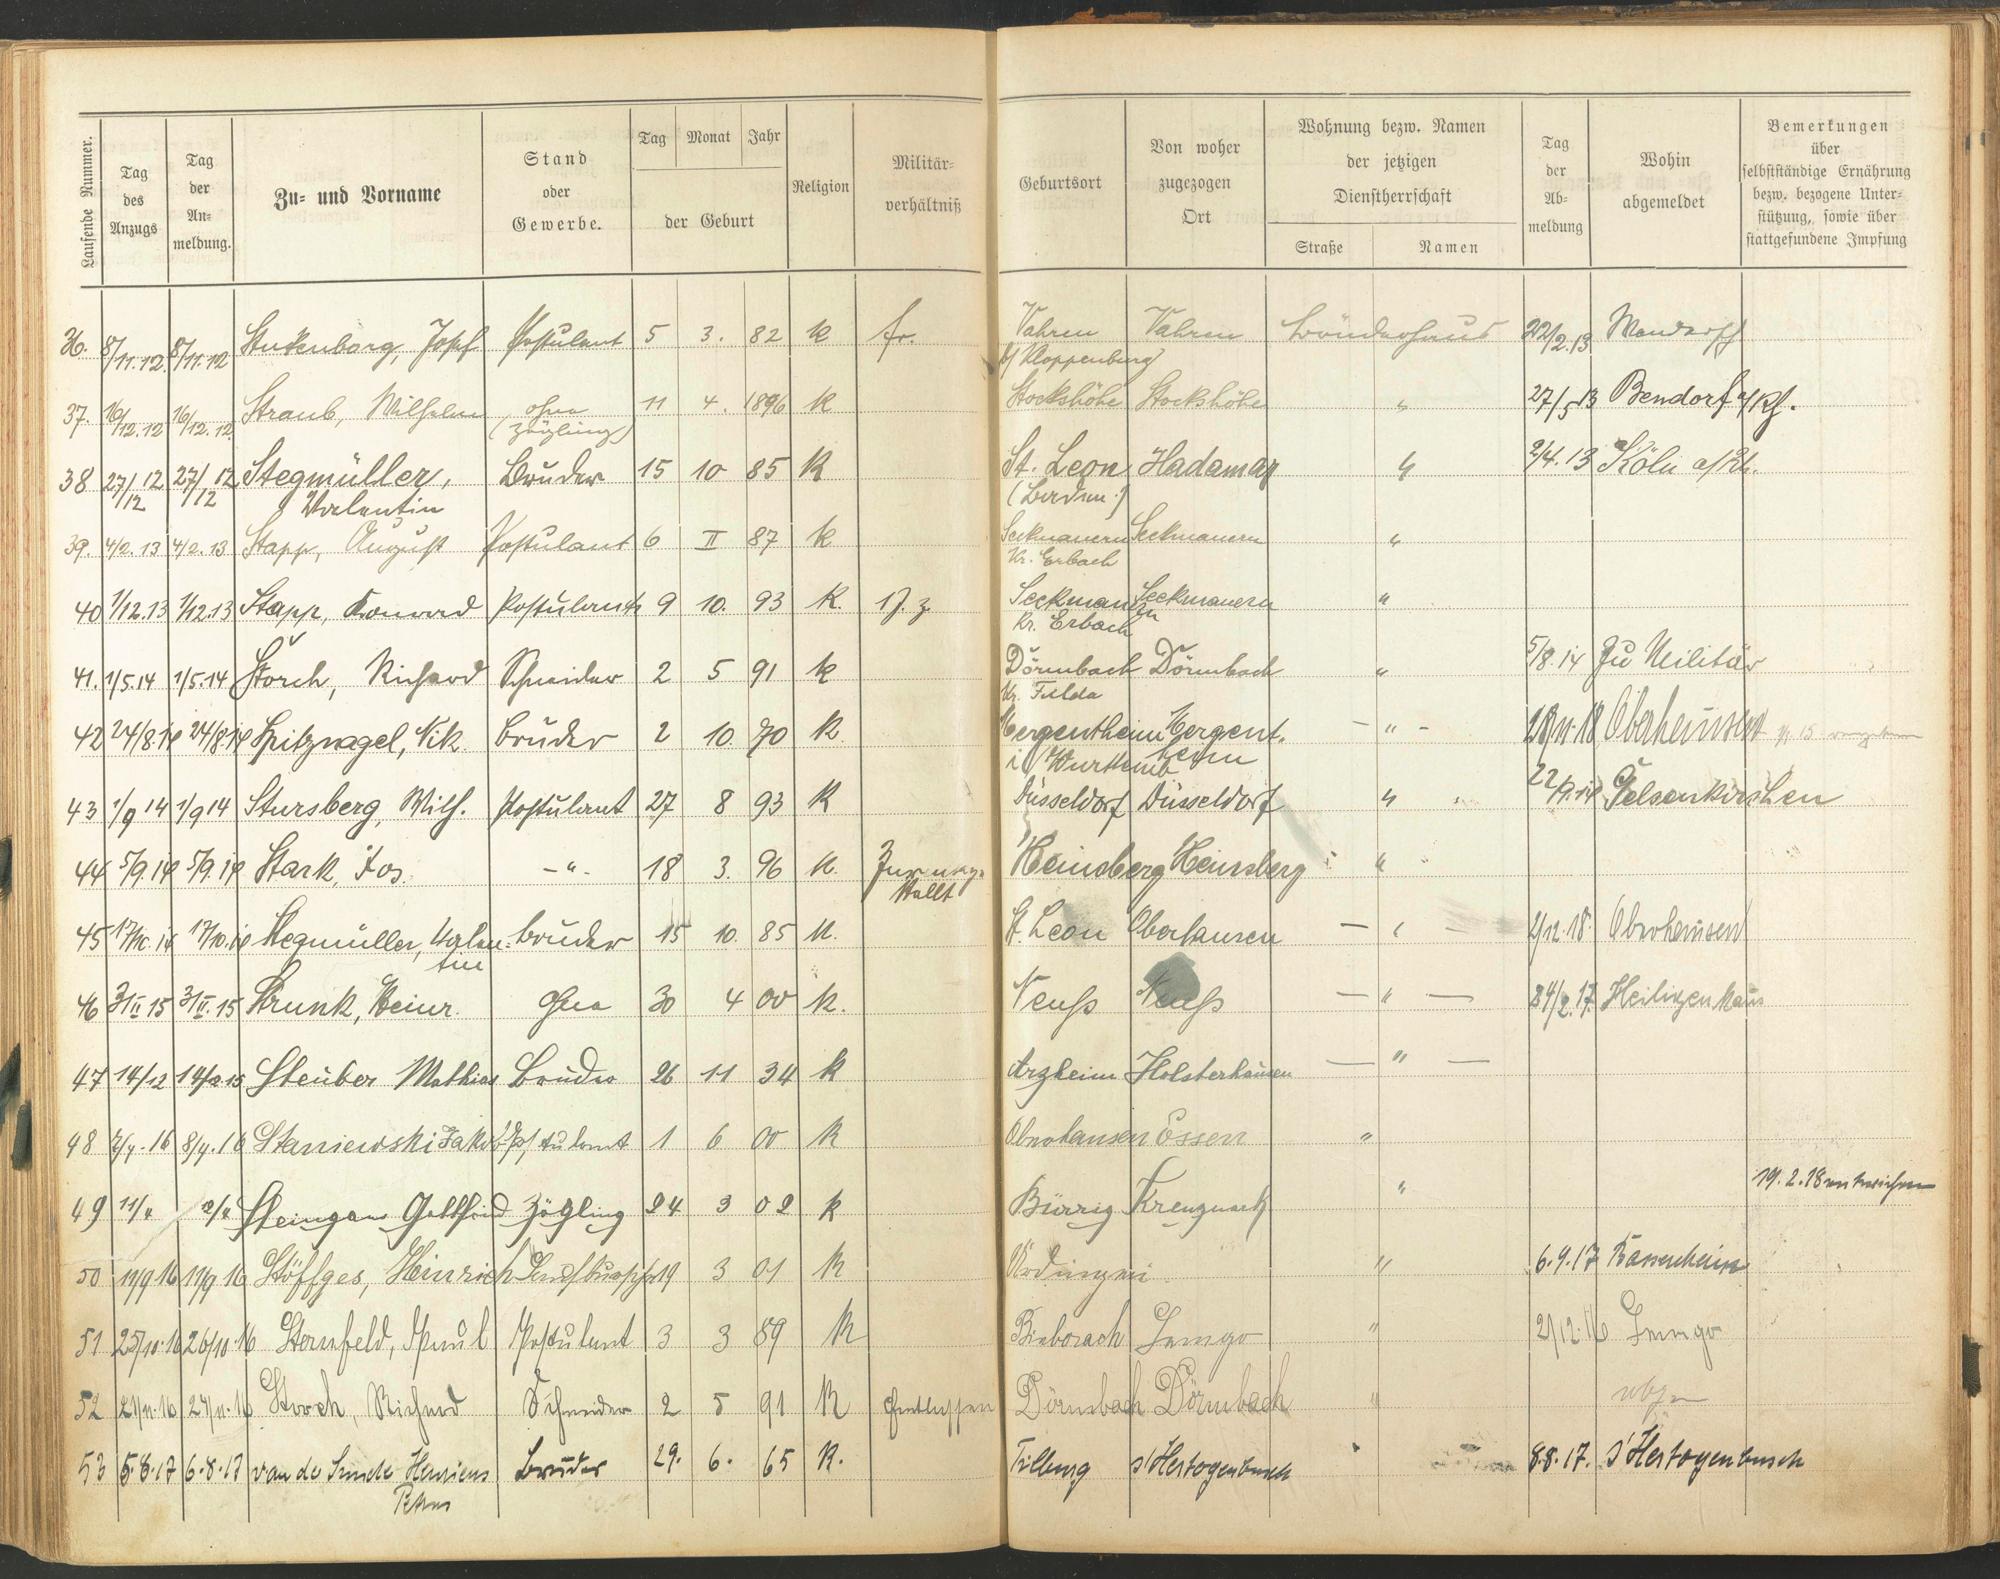 Laufende Nummer.
Tag des Anzugs
Tag der Anmeldung.
Zu- und Vorname
Stand oder Gewerbe.
Tag Monat Jahr
der Geburt
Religion
Militärverhältniß
Geburtsort
Von woher zugezogen Ort
Wohnung bezw. Namen der jetzigen Dienstherrschaft
Straße Namen
Tag der Abmeldung
Wohin abgemeldet
Bemerkungen über selbstständige Ernährung bezw. bezogene Unterstützung, sowie über stattgefundene Impfung
36. 8/11.12 8/11.12 Stukenborg, Josef Postulant 5 3. 82 k fr. Vahren Vahren Brüderhaus 22/2.13
b/ Kloppenburg
37. 16/12.12 16/12.12 Straub, Wilhelm ohne 11 4. 1896 K Stockshöhe Stockshöhe " 27/5 13 Bendorf a/Rh.
(Zögling)
38 27/12 12 27/12 12 Stegmüller, Bruder 15 10 85 K St. Leon Hadamar " 2/4. 13 Köln a/Rh.
Valentin (Baden.)
39. 4/2. 13 4/2. 13 Stapp, August Postulant 6 II 87 k Seckmauern Seckmauern "
Kr. Erbach
40 1/12.13 1/12.13 Stapp, Konrad Postulant 9 10. 93 K. Seckmauern Seckmauern "
Kr. Erbach
41. 1/5.14 1/5.14 Storch, Richard Schneider 2 5 91 k Dörmbach Dörmbach " 5/8.14 Zu Militär
Kr. Fulda
42 24/8.14 24/8.14 Spitznagel, Nik. Bruder 2 10. 70 K. Mergentheim Mergentheim - " - 18/11.18 Oberhausen
i/ Württemb
43 1/9 14 1/9 14 Stursberg, Wilh. Postulant 27 8 93 K Düsseldorf Düsseldorf " Gelsenkirchen
44 5/9.14 5/9.14 Stark, Jos. - " - 18 3. 96 K. Heinsberg Heinsberg "
45 17/10.14 17/10.14 Stegmüller, Valentin Bruder 15 10. 85 K. St. Leon Oberhausen — " — 2/12.18. Oberhausen
46 3/II 15 3/II.15 Strunk, Heinr. ohne 30 4 00 k. Neuß Neuß — " — 24/2.17. Heiligenhaus
47 14/12 14/12 15 Steuber Mathias Bruder 26 11 34 k Arzheim Holsterhausen — " —
48 7/4.16 8/4.16 Staniewski Jakob Postulant 1 6 00 K Oberhausen Essen "
49 Steingans Gottfried Zögling 24 3 02 k Bürrig Kreuznach " 19.2.18 entwichen
50 11/9 16 11/9 16 Stöffges, Heinrich 19 3 01 K " 6.9.17 Bassenheim
51 25/10.16 26/10.16 Sternfeld, Paul Postulant 3 3 89 K Lemgo " 2/12.16 Lemgo
52 21/11.16 24/11.16 Storch, Richard Schneider 2 5 91 K Entlassen Dörmbach Dörmbach "
53 5.8.17 6.8.17 van de Hermens Bruder 29. 6. 65 K. Tilburg s'Hertogenbusch 8.8.17. s'Hertogenbusch
Petrus